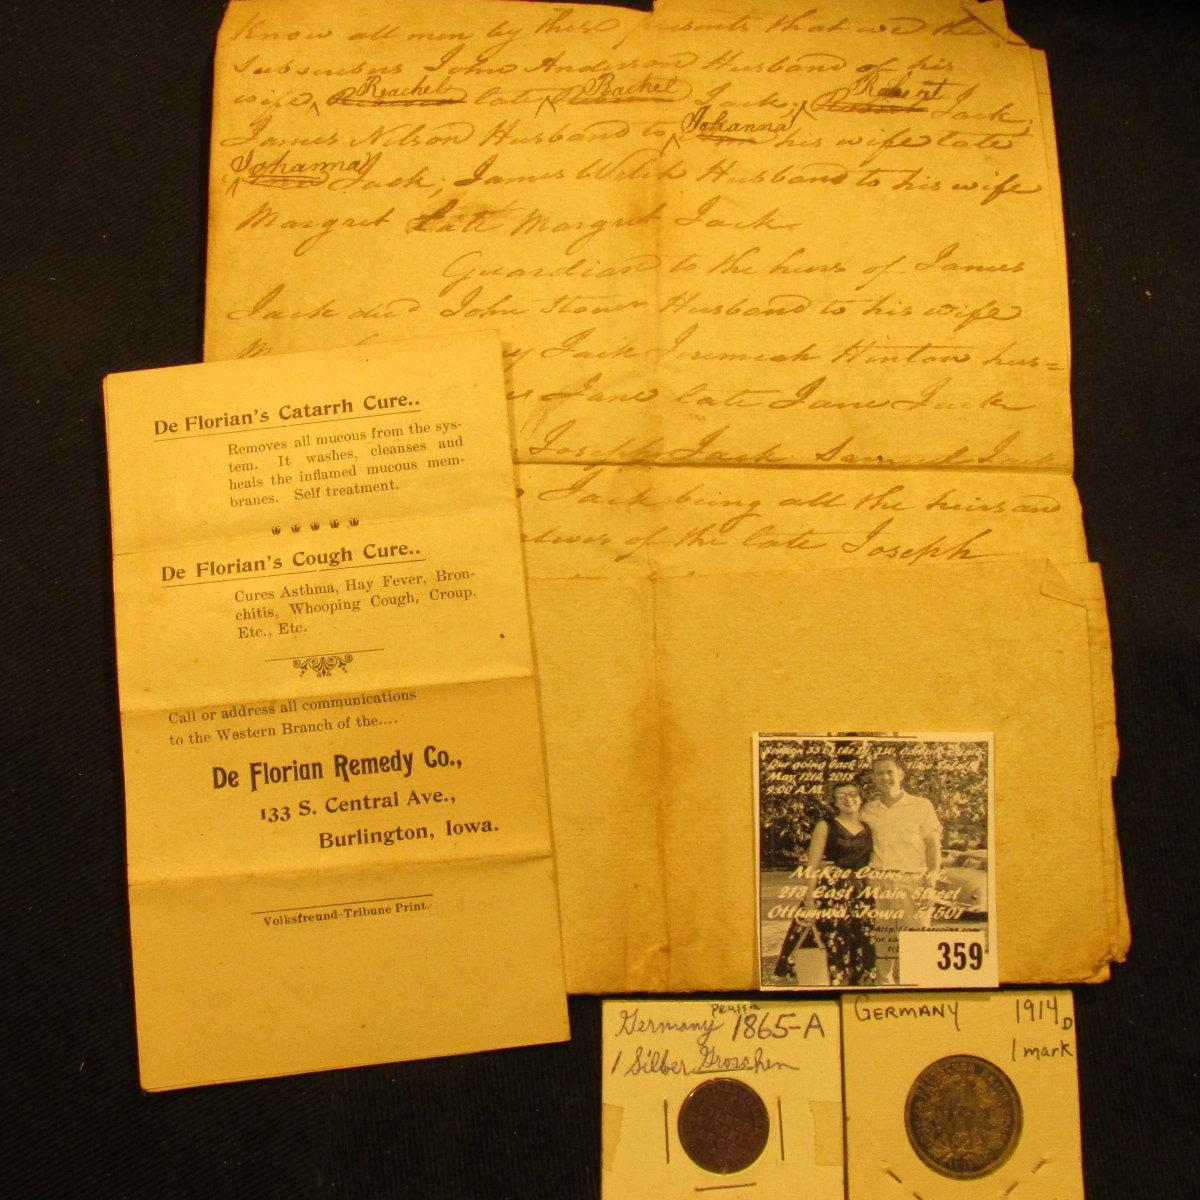 Know all men by these presents that we the
subscribers John Anderson Husband of his
wife, Rachel late Rachel Jack; Robert Jack,
James Nilson Husband to Johanna his wife late
Johanna Jack; James Welch Husband to his wife
Margret Late Margret Jack
Guardian to the heirs of James
Jack died John Stoner Husband to his wife
Jack Jeremiah Hinton hus=
Jane late Jane Jack
Joseph Jack Samuel Jack
Jack being all the heirs and
of the late Joseph
De Florian's Catarrh Cure..
Removes all mucous from the sys-
tem. It washes, cleanses and
heals the inflamed mucous mem-
branes. Self treatment.
De Florian's Cough Cure..
Cures Asthma, Hay Fever, Bron-
chitis, Whooping Cough, Croup.
Etc., Etc.
Call or address all communications
to the Western Branch of the....
De Florian Remedy Co.,
133 S. Central Ave.,
Burlington, Iowa.
Volksfreund-Tribune Print.
Our going back in
May 12th, 2018
9:00 A.M.
McKee Coins, Inc.
213 East Main Street
Ottumwa, Iowa 52501
359
Prussia
Germany 1865-A
1 Silber Groschen
GERMANY 1914 D
1 mark